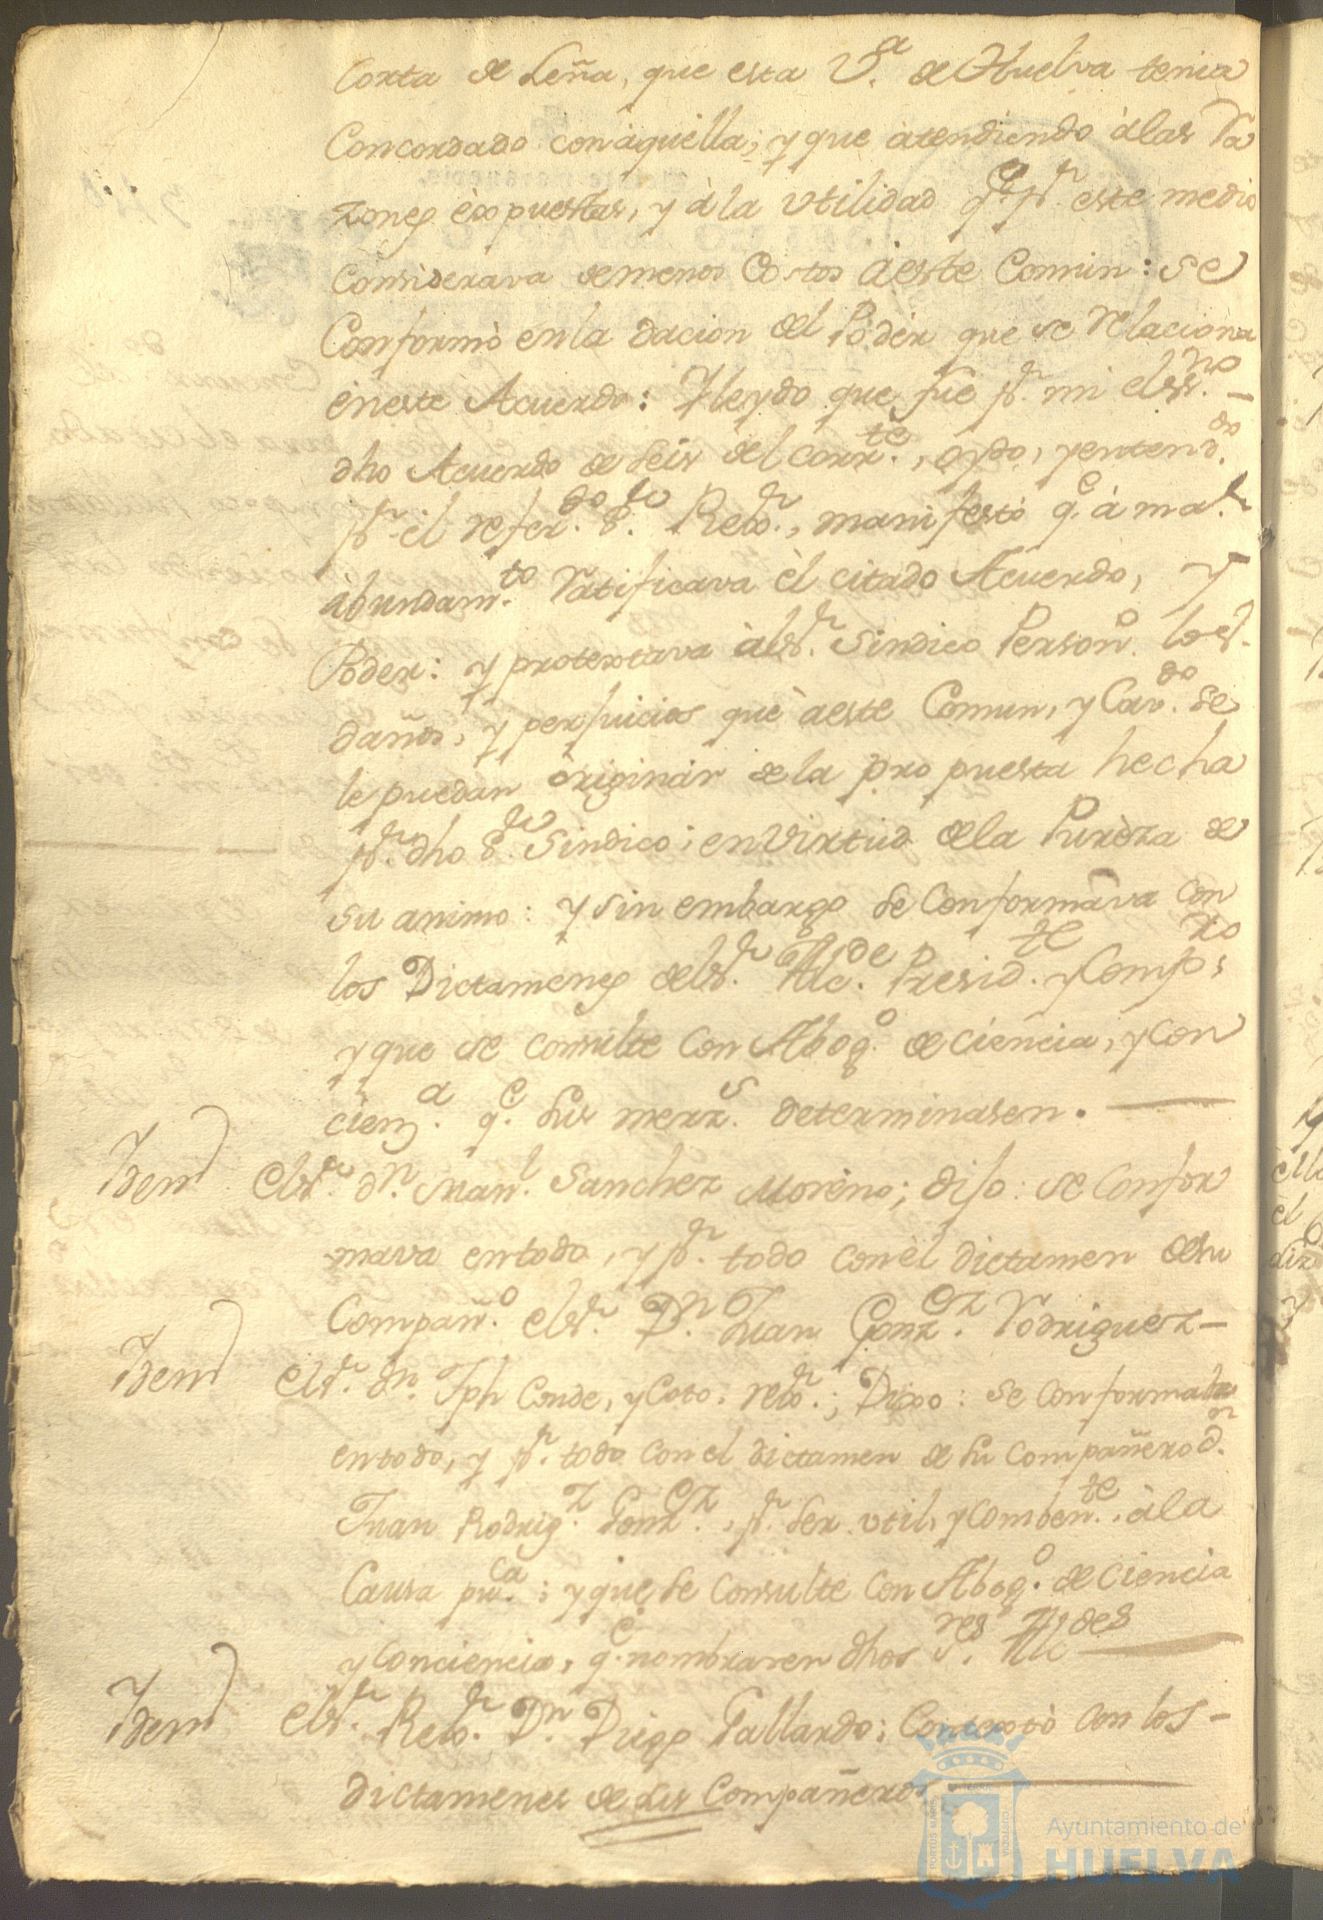 Corta de Leña, que esta V.ª de Huelva tenia
Concordado con àquella; y que àtendiendo àlas Ra
zones èxpuestas, y à la vtilidad q.e p.r este medio
Considerava de menos Costos àeste Comun: se
Conformò en la dacion del Podèr que se relaciona
èn este Acuerdo: Y leydo que fue p.r mi el ss.no –
dho Acuerdo de seis del corr.te, oydo, y entend.do
p.r èl refer.do s.or Rexo.r, manifestò q.e à ma.r
àbundam.to Ratificava èl citado Acuerdo, y
Poder: y protextava àl s.r Sindico Person.o los
daños, y perjuicios què àeste Comun, y Cav.do se
le puedan òriginàr de la propuesta hecha
p.r dho s.or Sindico; en Virtud de la Purèza de
su animo: y sin embargo se Conformava con
los Dictamenes del s.r Alc.de Presid.te y Comp.ro,
y que se consulte con Abog.o de ciencia, y con
cienz.a q.e sus merz.s determinasen. —
Idem El s.r d.n Man.l Sanchez Moreno; dijo: se Confor
mava en todo, y p.r todo con èl dictamen de su
Compañ.o el s.r D.n Juan Gonz.ez Rodriguez –
Idem El s.r d.n Jph Conde, y Coto, rexo.r; Dixo: se conformaba
en todo, y p.r todo con el dictamen de su compañero d.n
Juan Rodrig.z Gonz.ez, p.r ser vtil, y comben.te, à la
Causa pu.ca: y que se consulte con Abog.o de ciencia
y conciencia, q.e nombraren dhos s.res Alc.des —
Idem El s.r Rexo.r D.n Diego Gallardo; Contextò con los –
dictamenes de sus Compañeros. —
Ayuntamiento de
HUELVA